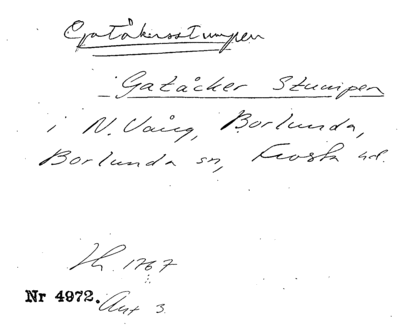 Gatåkersstumpen
Gatåcker Stumpen
i N. Vång, Borlunda,
Borlunda sn, Frosta hd.
Lh. 1767
Nr 4972. Akt 3